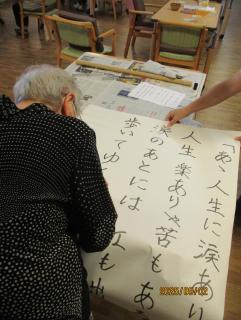 「あゝ人生に涙あり
人生楽ありゃ苦もあ
涙のあとには虹も出
歩いてゆく